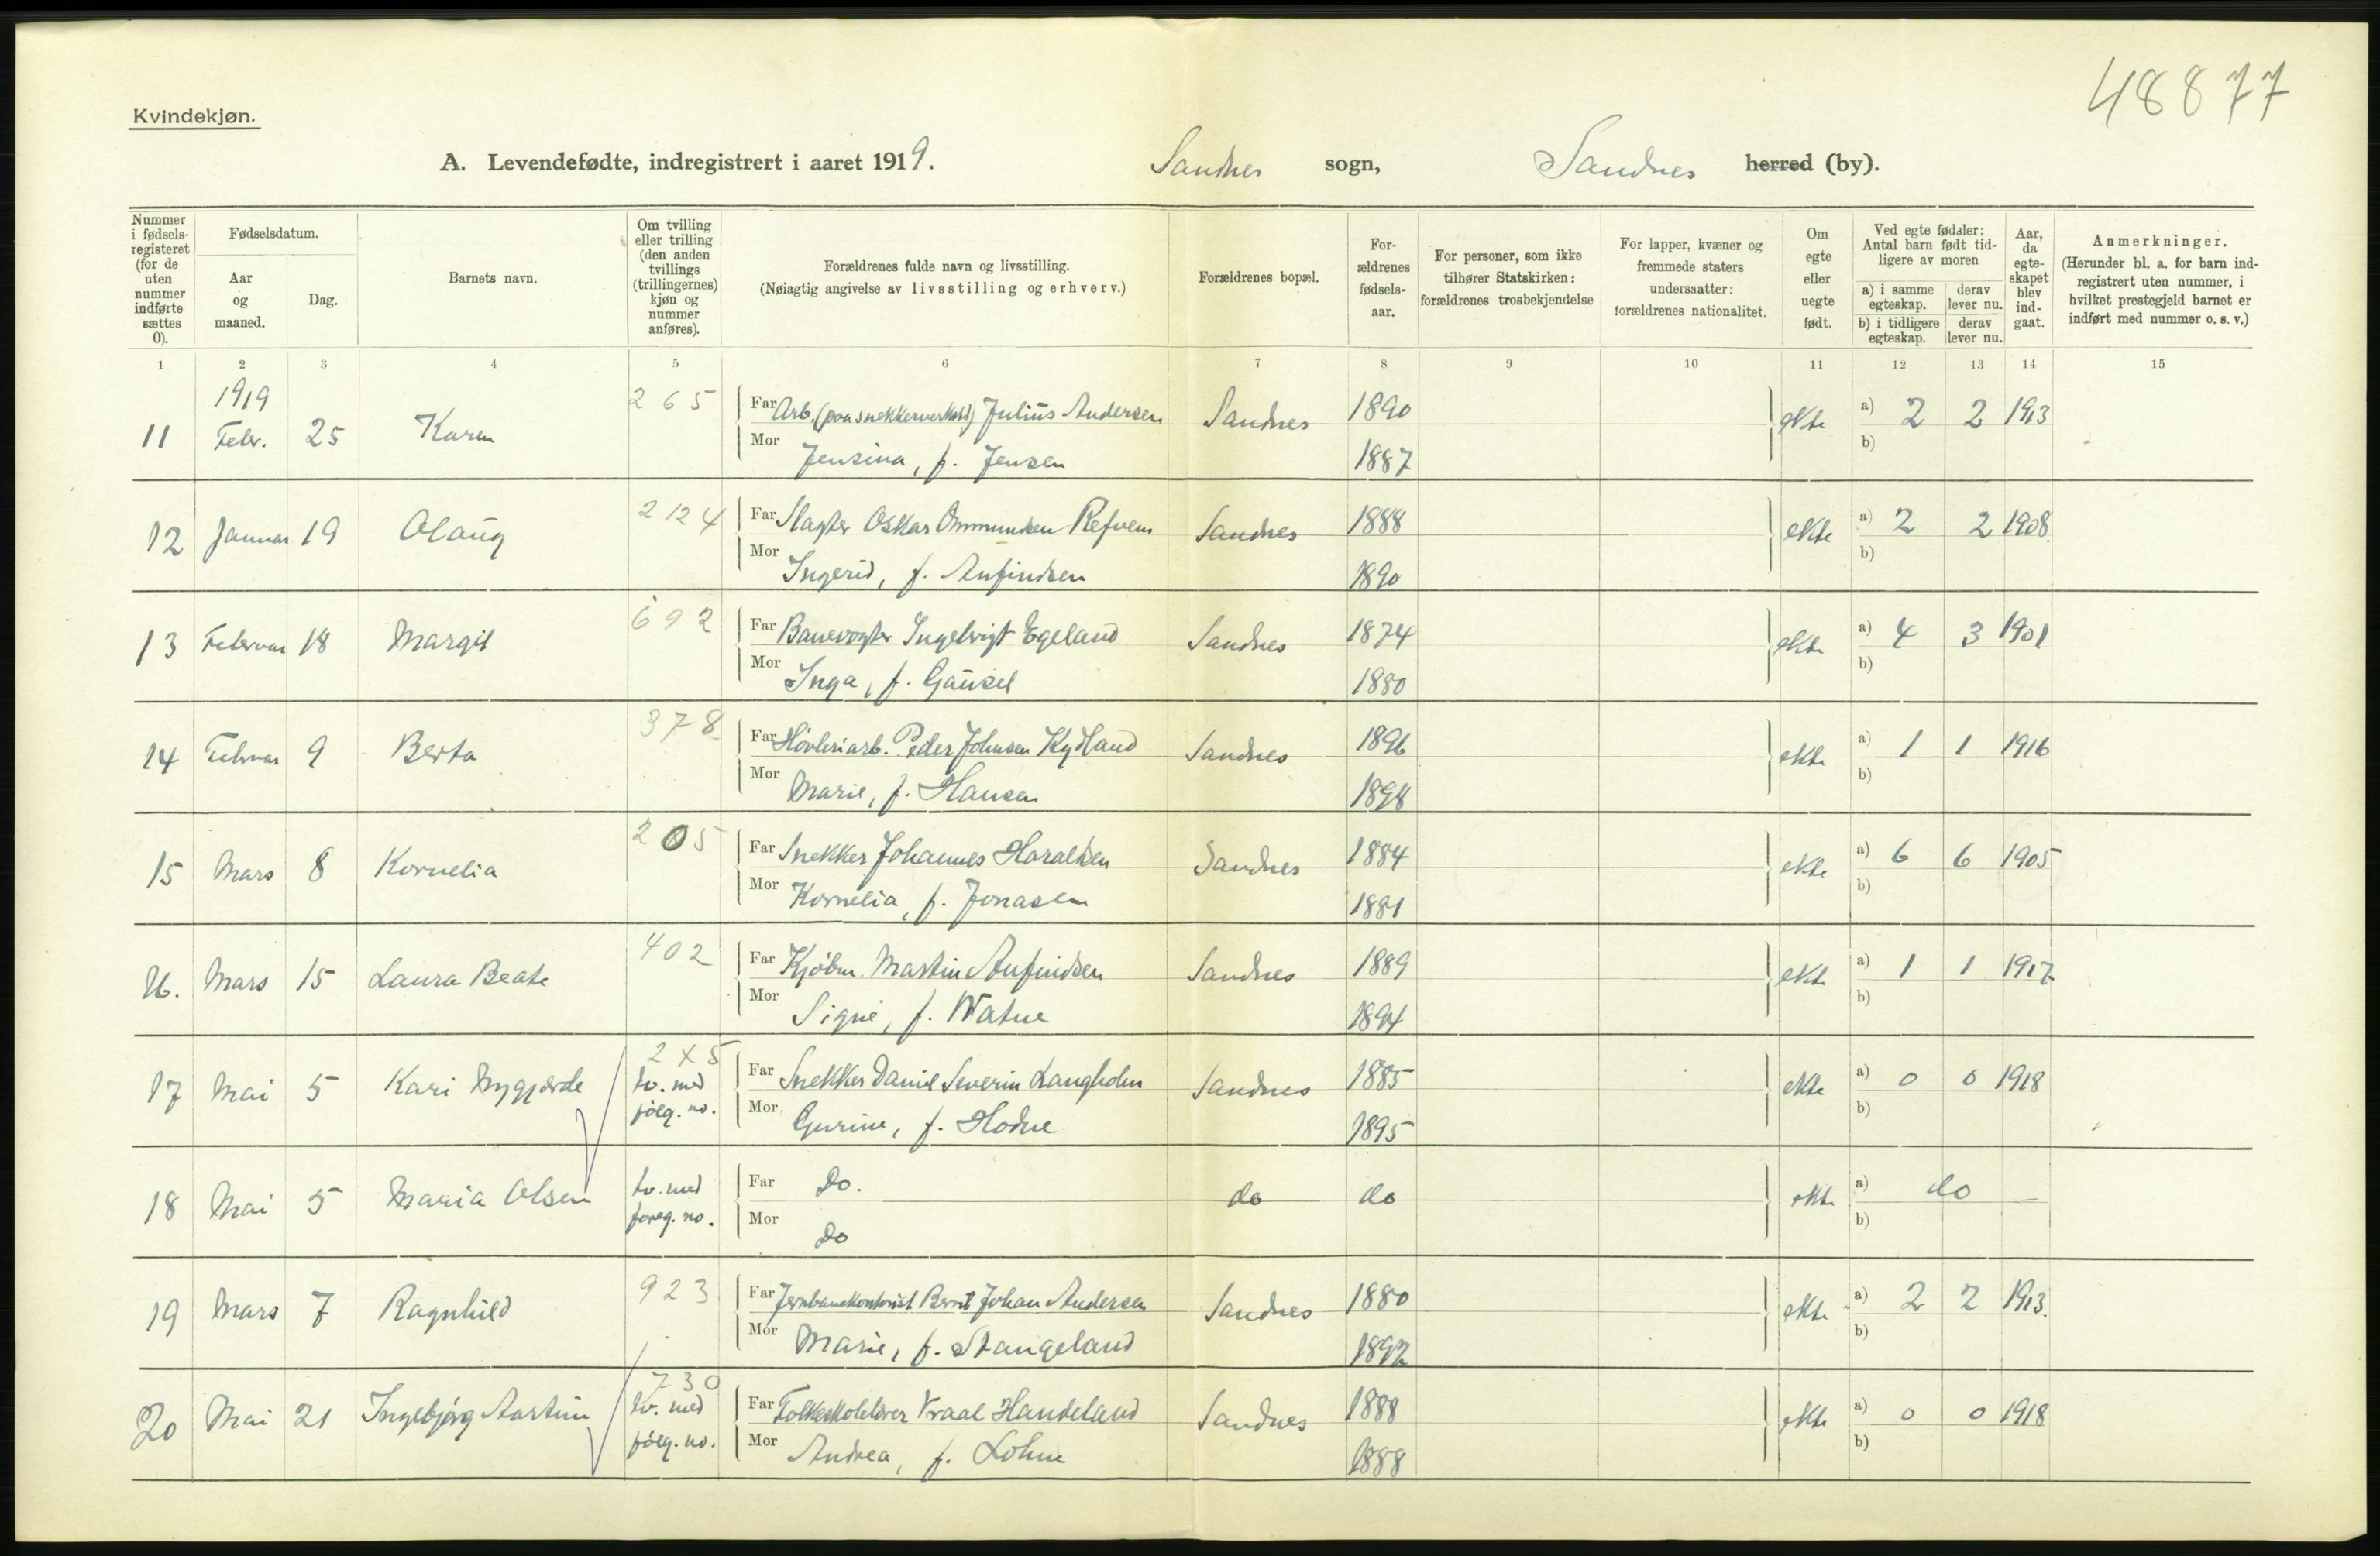 48877
Kvindekjøn.
A. Levendefødte, indregistrert i aaret 1919. Sandnes sogn, Sandnes herred (by).
Nummer i fødsels-registeret (for de uten nummer indførte sættes 0).
Fødselsdatum.
Aar og maaned.
Dag.
Barnets navn.
Om tvilling eller trilling (den anden tvillings (trillingernes) kjøn og nummer anføres).
Forældrenes fulde navn og livsstilling.
(Nøiagtig angivelse av livsstilling og erhverv.)
Forældrenes bopæl.
For-ældrenes fødsels-aar.
For personer, som ikke tilhører Statskirken: forældrenes trosbekjendelse
For lapper, kvæner og fremmede staters undersaatter: forældrenes nationalitet.
Om egte eller uegte født.
Ved egte fødsler: Antal barn født tid-ligere av moren
a) i samme egteskap.
derav lever nu.
b) i tidligere egteskap.
derav lever nu.
Aar, da egte-skapet blev ind-gaat.
Anmerkninger.
(Herunder bl. a. for barn ind-registrert uten nummer, i hvilket prestegjeld barnet er indført med nummer o. s. v.)
1 2 3 4 5 6 7 8 9 10 11 12 13 14 15
1919
265
11 Febr. 25 Karen Far Arb. (paa snekkerverksted) Julius Andersen Sandnes 1890 ekte a) 2 2 1913
Mor Jensina, f. Jensen 1887 b)
2124
12 Januar 19 Olaug Far Slagter Oskar Ommundsen Refvem Sandnes 1888 ekte a) 2 2 1908.
Mor Ingerid, f. Anfindsen 1890 b)
692
13 Februar 18 Margit Far Banevogter Ingebrigt Egeland Sandnes 1874 ekte a) 4 3 1901
Mor Inga, f. Gausel 1880 b)
378
14 Februar 9 Berta Far Høvleriarb. Peder Johnsen Kydland Sandnes 1896 ekte a) 1 1 1916
Mor Marie, f. Hansen 1898 b)
205
15 Mars 8 Kornelia Far Snekker Johannes Haraldsen Sandnes 1884 ekte a) 6 6 1905
Mor Kornelia, f. Jonasen 1881 b)
402
16. Mars 15 Laura Beate Far Kjøbm. Martin Anfindsen Sandnes 1889 ekte a) 1 1 1917
Mor Signe, f. Watne 1894 b)
2x5
17 Mai 5 Kari Nygjærde tv. med følg. no. Far Snekker Daniel Severin Langholm Sandnes 1885 ekte a) 0 0 1918
Mor Gurine, f. Hodne 1895 b)
18 Mai 5 Maria Olsen tv. med foreg. no. Far Do. do do ekte a) do —
Mor Do b)
923
19 Mars 7 Ragnhild Far Jernbanekontorist Bernt Johan Andersen Sandnes 1880 ekte a) 2 2 1913.
Mor Marie, f. Stangeland 1892 b)
730
20 Mai 21 Ingebjørg Aartun tv. med følg. no. Far Folkeskolelærer Vraal Handeland Sandnes 1888 ekte a) 0 0 1918
Mor Andrea, f. Lohne 1888 b)